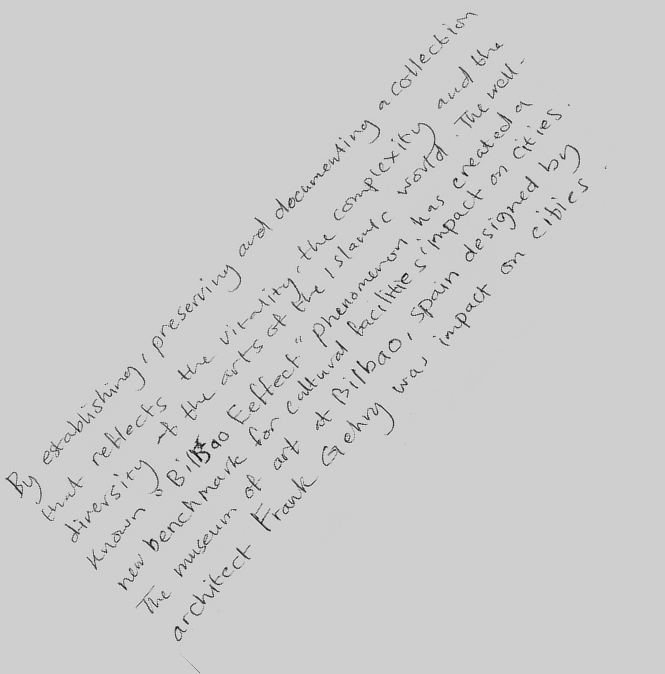 By establishing, preserving and documenting a collection
that reflects the vitality, the complexity and the
diversity of the arts of the Islamic world. The well-
known "Bilbao Eeffect" phenomenon has created a
new benchmark for caltural facilities' impact on cities.
The museum of art at Bilbao, Spain designed by
architect Frank Gehry was impact on cities.